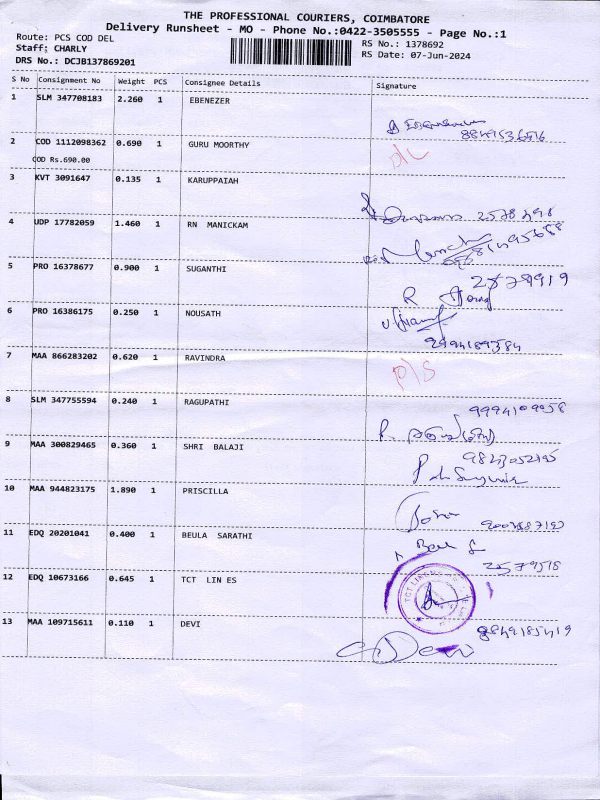 THE PROFESSIONAL COURIERS, COIMBATORE
Delivery Runsheet - MO - Phone No.:0422-3505555 - Page No.:1
Route: PCS COD DEL
RS No.: 1378692
Staff: CHARLY
RS Date: 07-Jun-2024
DRS No.: DCJB137869201
S No Consignment No Weight PCS Consignee Details Signature
1 SLM 347708183 2.260 1 EBENEZER
2 COD 1112098362 0.690 1 GURU MOORTHY
COD Rs.690.00
3 KVT 3091647 0.135 1 KARUPPAIAH
4 UDP 17782059 1.460 1 RN MANICKAM
5 PRO 16378677 0.900 1 SUGANTHI
2579919
R
6 PRO 16386175 0.250 1 NOUSATH
7 MAA 866283202 0.620 1 RAVINDRA
P/S
8 SLM 347755594 0.240 1 RAGUPATHI
9 MAA 300829465 0.360 1 SHRI BALAJI
10 MAA 944823175 1.890 1 PRISCILLA
11 EDQ 20201041 0.400 1 BEULA SARATHI
12 EDQ 10673166 0.645 1 TCT LIN ES
2579518
13 MAA 109715611 0.110 1 DEVI
Devi